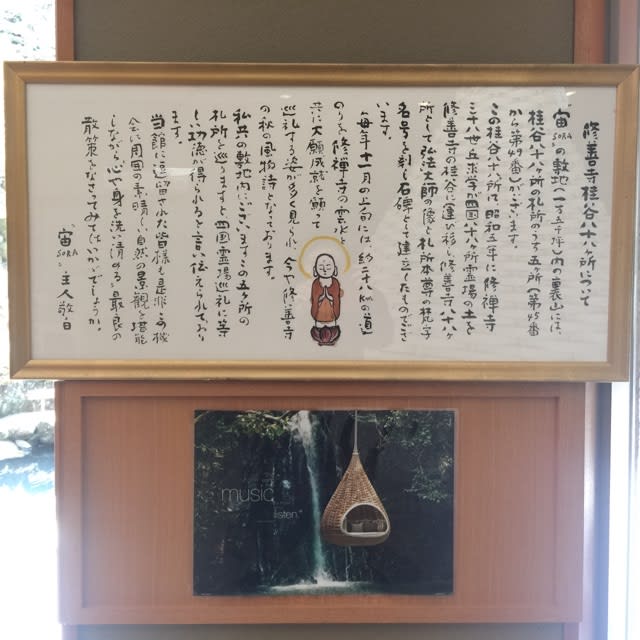 修善寺桂谷八十八ヶ所について
"宙SORA"の敷地(一万五千坪)内の裏山には、
桂谷八十八ヶ所の札所のうち五ヶ所(第45番
から第49番)がございます。
この桂谷八十八ヶ所は、昭和五年に修禅寺
三十八世丘球学が四国八十八ヶ所霊場の土を
修善寺の桂谷に運び移し、修善寺八十八ヶ
所として弘法大師の像と札所本尊の梵字
名号を刻し石碑として建立したものでござ
います。
毎年十一月の上旬には、約二十八kmの道
のりを修禅寺の雲水と
共に大願成就を願って
巡礼する姿が多く見られ、今や修善寺
の秋の風物詩となっております。
私共の敷地内にございますこの五ヶ所の
札所を巡りますと四国霊場巡礼に等
しい功徳が得られると言い伝えられており
ます。
当館に逗留された皆様も是非この機
会に周囲の素晴しい自然の景観を堪能
しながら、心や身を洗い清める最良の
散策をなさってみてはいかがでしょうか。
"宙SORA"主人敬白
music
listen.